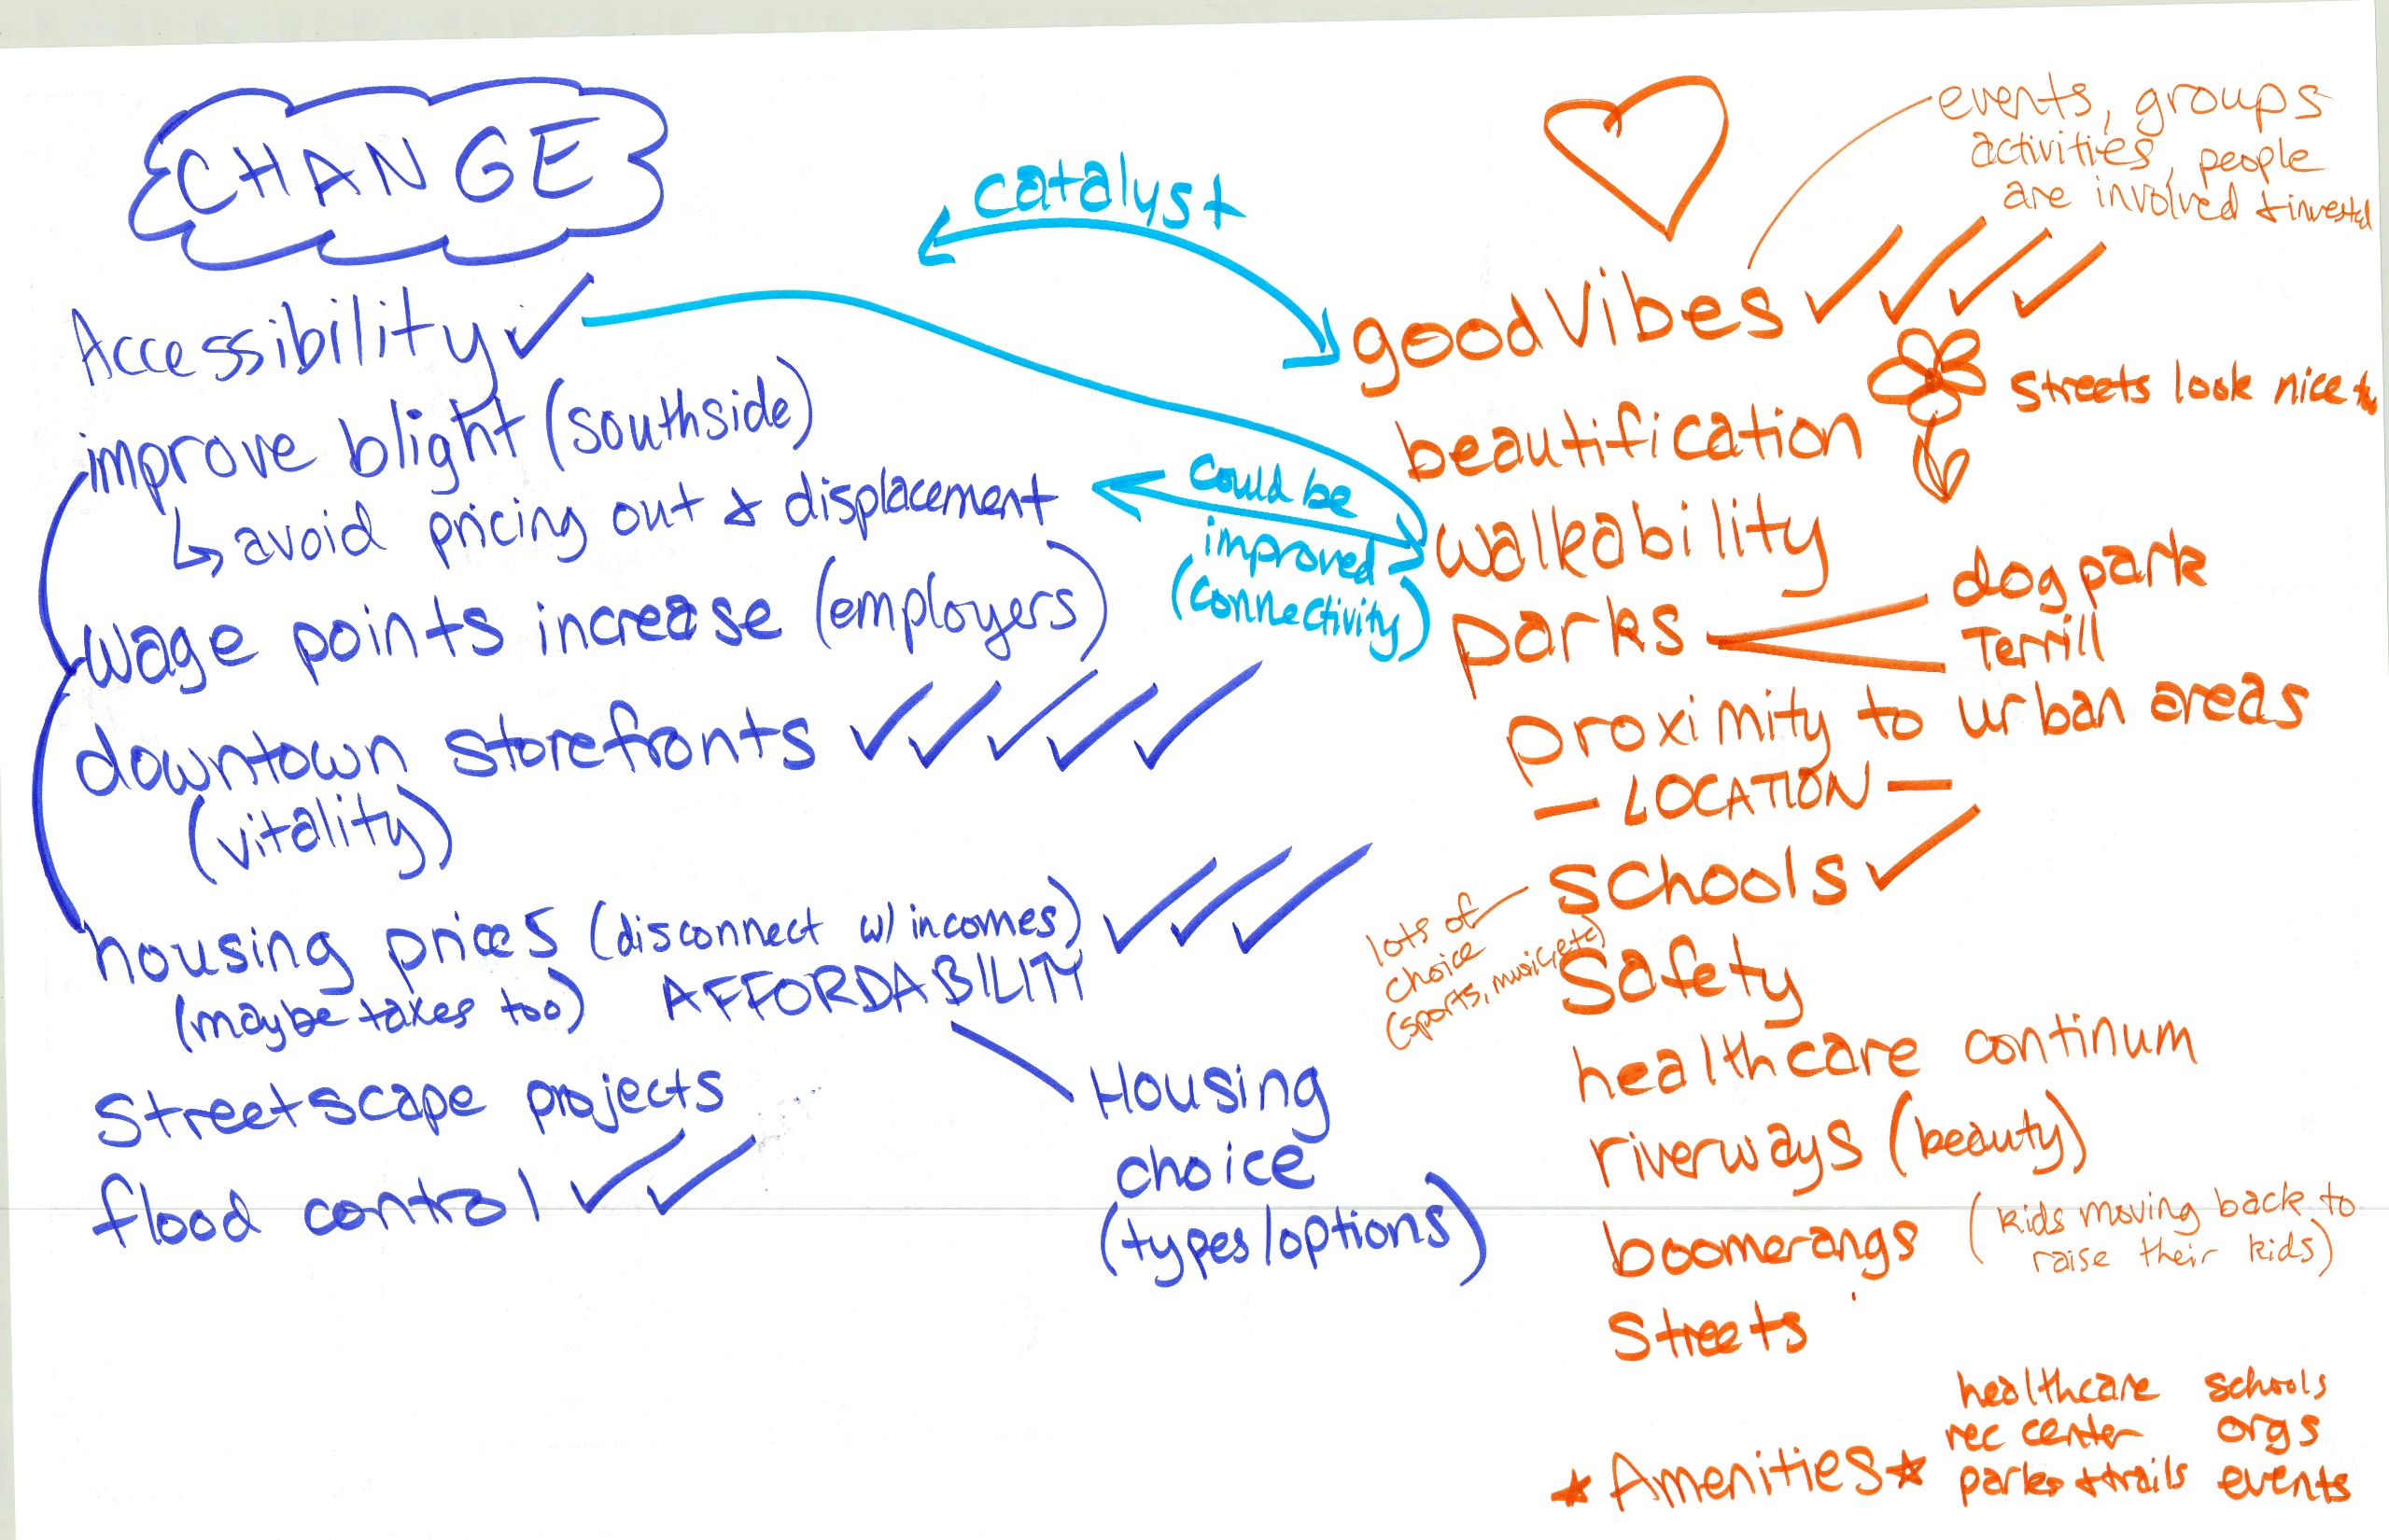 CHANGE
Accessibility ✓
improve blight (southside)
↳ avoid pricing out & displacement
wage points increase (employers)
downtown storefronts ✓✓✓✓✓
(vitality)
housing prices (disconnect w/ incomes) ✓✓✓
(maybe taxes too) AFFORDABILITY
Housing
choice
(types/options)
Streetscape projects
flood control ✓✓
catalyst
could be
improved
(connectivity)
events, groups
activities, people
are involved & invested
good vibes ✓✓✓✓
streets look nice
beautification
walkability
parks
dog park
Terrill
proximity to urban areas
- LOCATION -
schools ✓
lots of
choice
(sports, music, etc)
safety
healthcare continum
riverways (beauty)
boomerangs (kids moving back to
raise their kids)
Streets
★ Amenities ★
healthcare schools
rec center orgs
parks & trails events